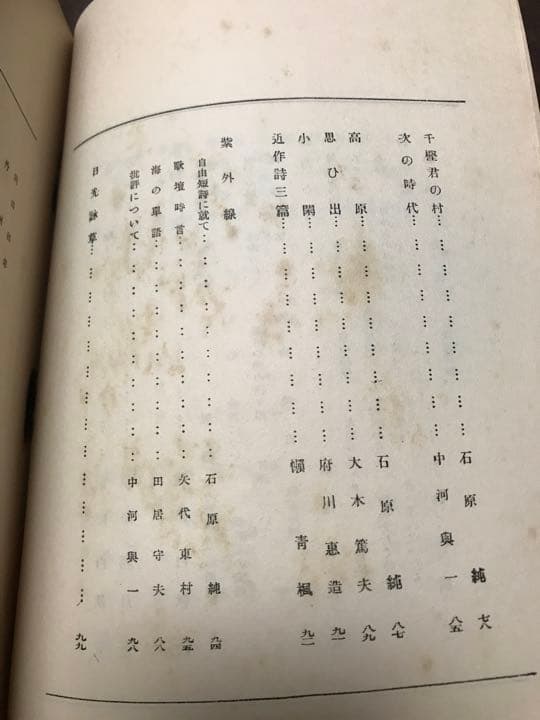 千樫君の村………………石原純 七八
次の時代………………中河與一 八五
高原………………石原純 八七
思ひ出………………大木篤夫 八九
小閑………………府川惠造 九一
近作詩三篇………………懶青楓 九二
紫外線
自由短詩に就て………………石原純 九四
歌壇時言………………矢代東村 九五
海の單語………………田居守夫 八八
批評について………………中河與一 九八
日光詠草………………九九